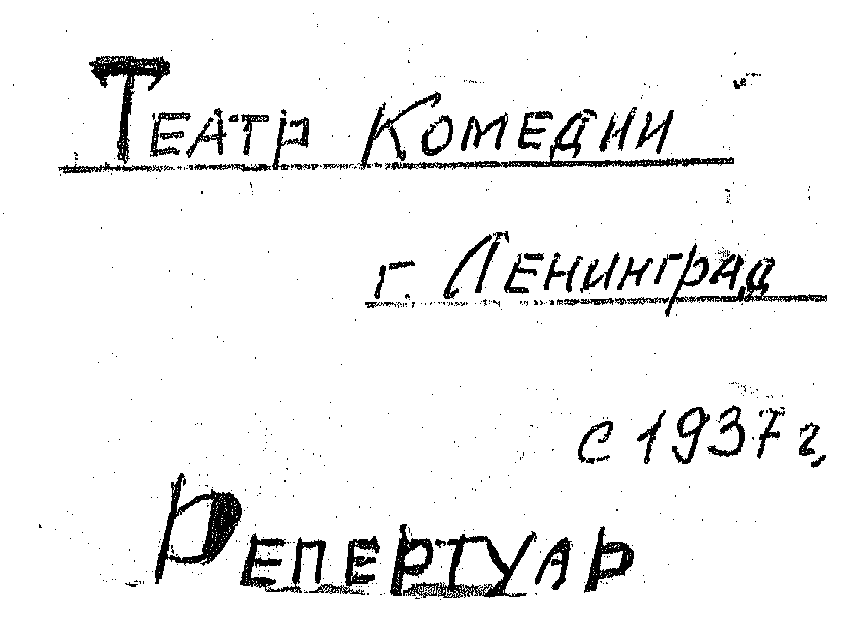 Театр Комедии
г. Ленинград
с 1937 г.
Репертуар